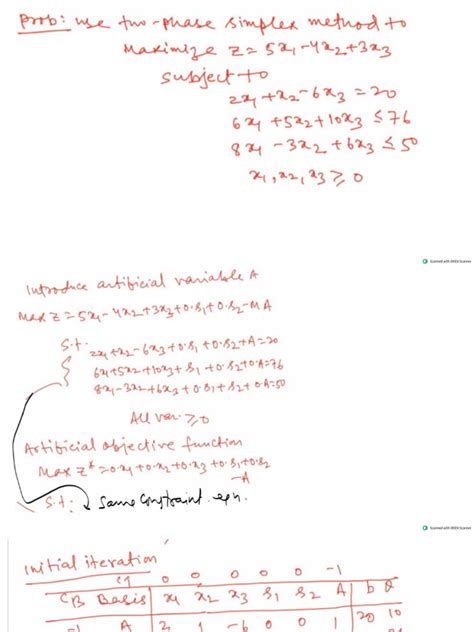 Prob: Use two-phase simplex method to
Maximize Z = 5x1 - 4x2 + 3x3
Subject to
2x1 + x2 - 6x3 = 20
6x1 + 5x2 + 10x3 ≤ 76
8x1 - 3x2 + 6x3 ≤ 50
x1, x2, x3 ≥ 0
Scanned with OKEN Scanner
Introduce artificial variable A
Max Z = 5x1 - 4x2 + 3x3 + 0.s1 + 0.s2 - MA
S.t.
2x1 + x2 - 6x3 + 0.s1 + 0.s2 + A = 20
6x1 + 5x2 + 10x3 + s1 + 0.s2 + 0.A = 76
8x1 - 3x2 + 6x3 + 0.s1 + s2 + 0.A = 50
All var. ≥ 0
Artificial objective function
Max Z* = 0.x1 + 0.x2 + 0.x3 + 0.s1 + 0.s2
-A
S.t: Same constraint eqn.
Scanned with OKEN Scanner
Initial iteration
Cj 0 0 0 0 0 -1
CB Basis x1 x2 x3 s1 s2 A b θ
-1 A 2 1 -6 0 0 1 20 10